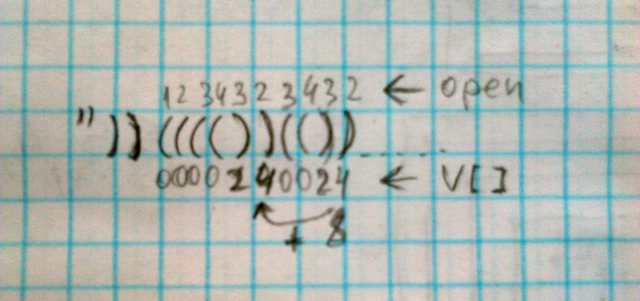 1 2 3 4 3 2 3 4 3 2 ← open
" ) ) ( ( ( ( ) ) ( ( ) ) ......
0 0 0 0 2 4 0 0 2 4 ← V[]
+ 8